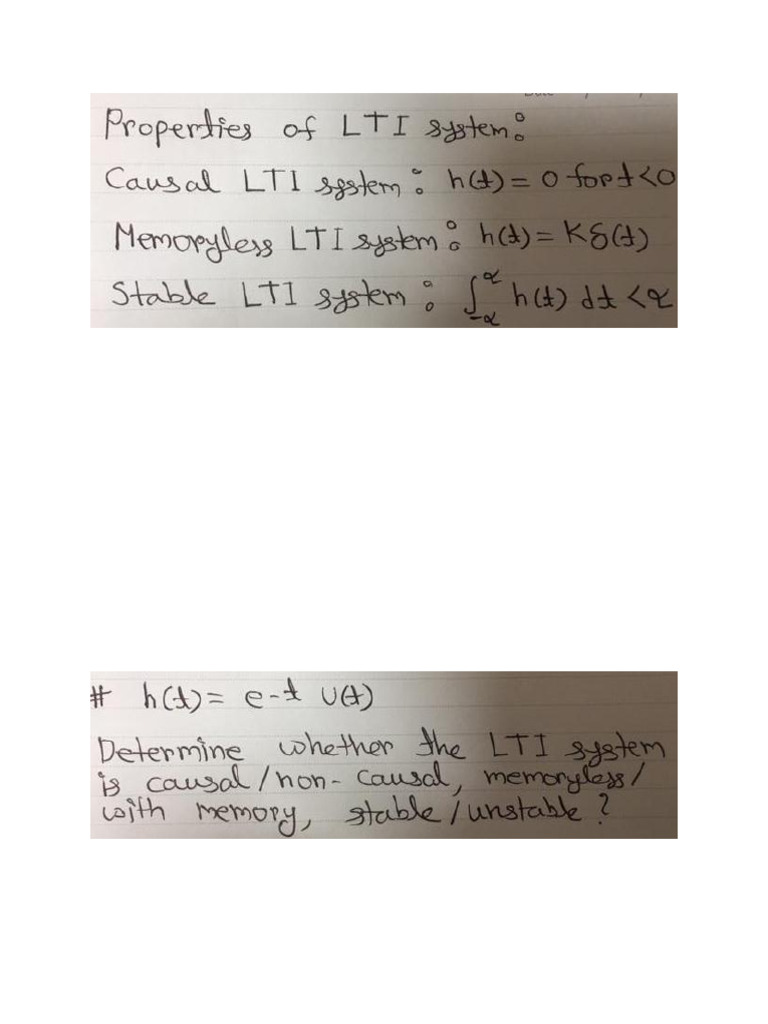 Properties of LTI system:
Causal LTI system: h(t) = 0 for t<0
Memoryless LTI system: h(t) = Kδ(t)
Stable LTI system: ∫_{-∝}^{∝} h(t) dt < ∝
# h(t) = e-t U(t)
Determine whether the LTI system
is causal/non-causal, memoryless/
with memory, stable/unstable?